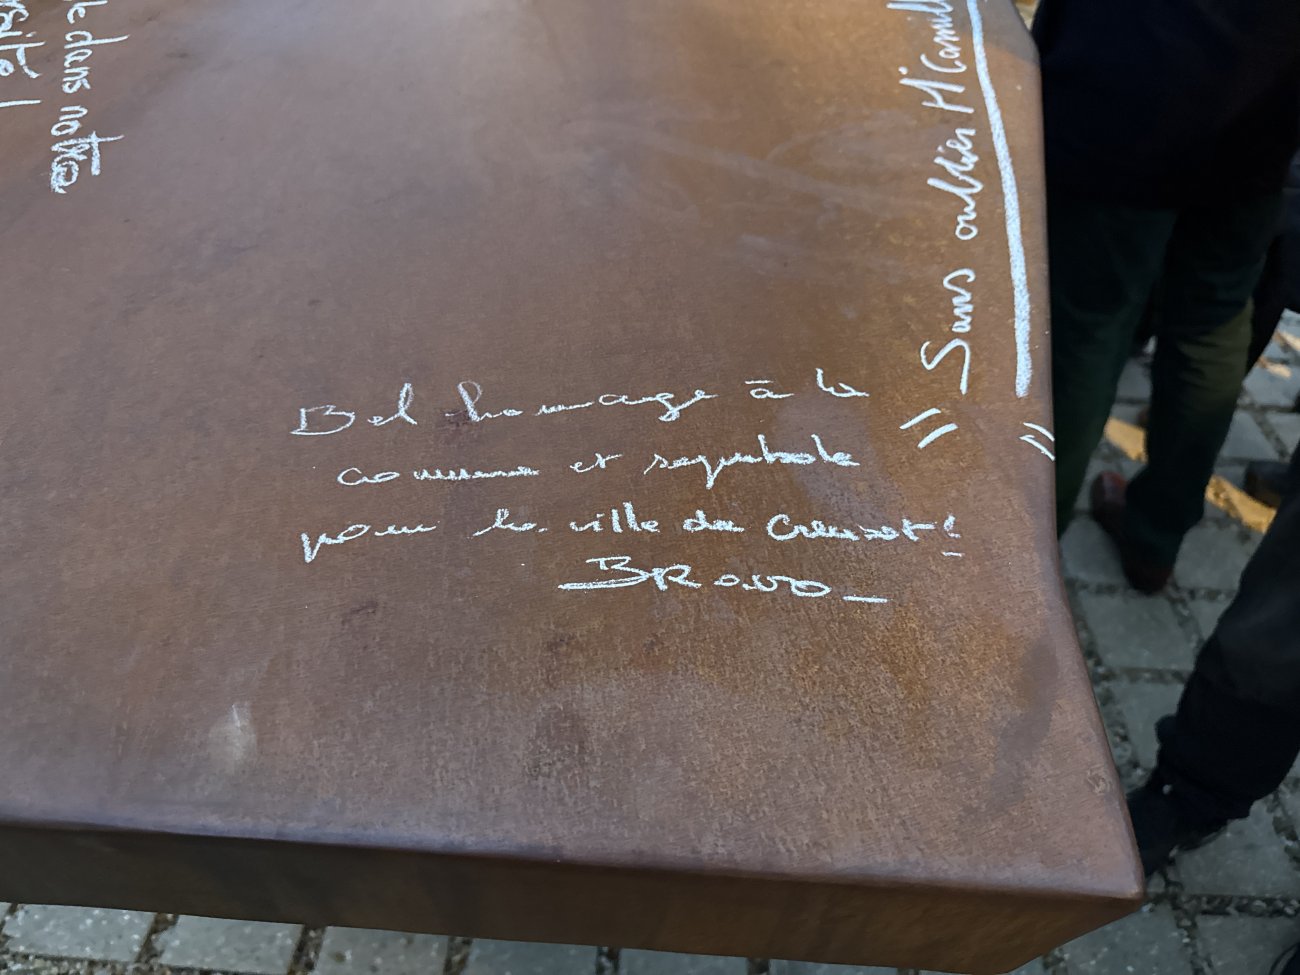 dans notre
" Sans oublier Mr Camill
"
Bel hommage à la
commune et symbole
pour la ville du Creusot !
BRAVO_